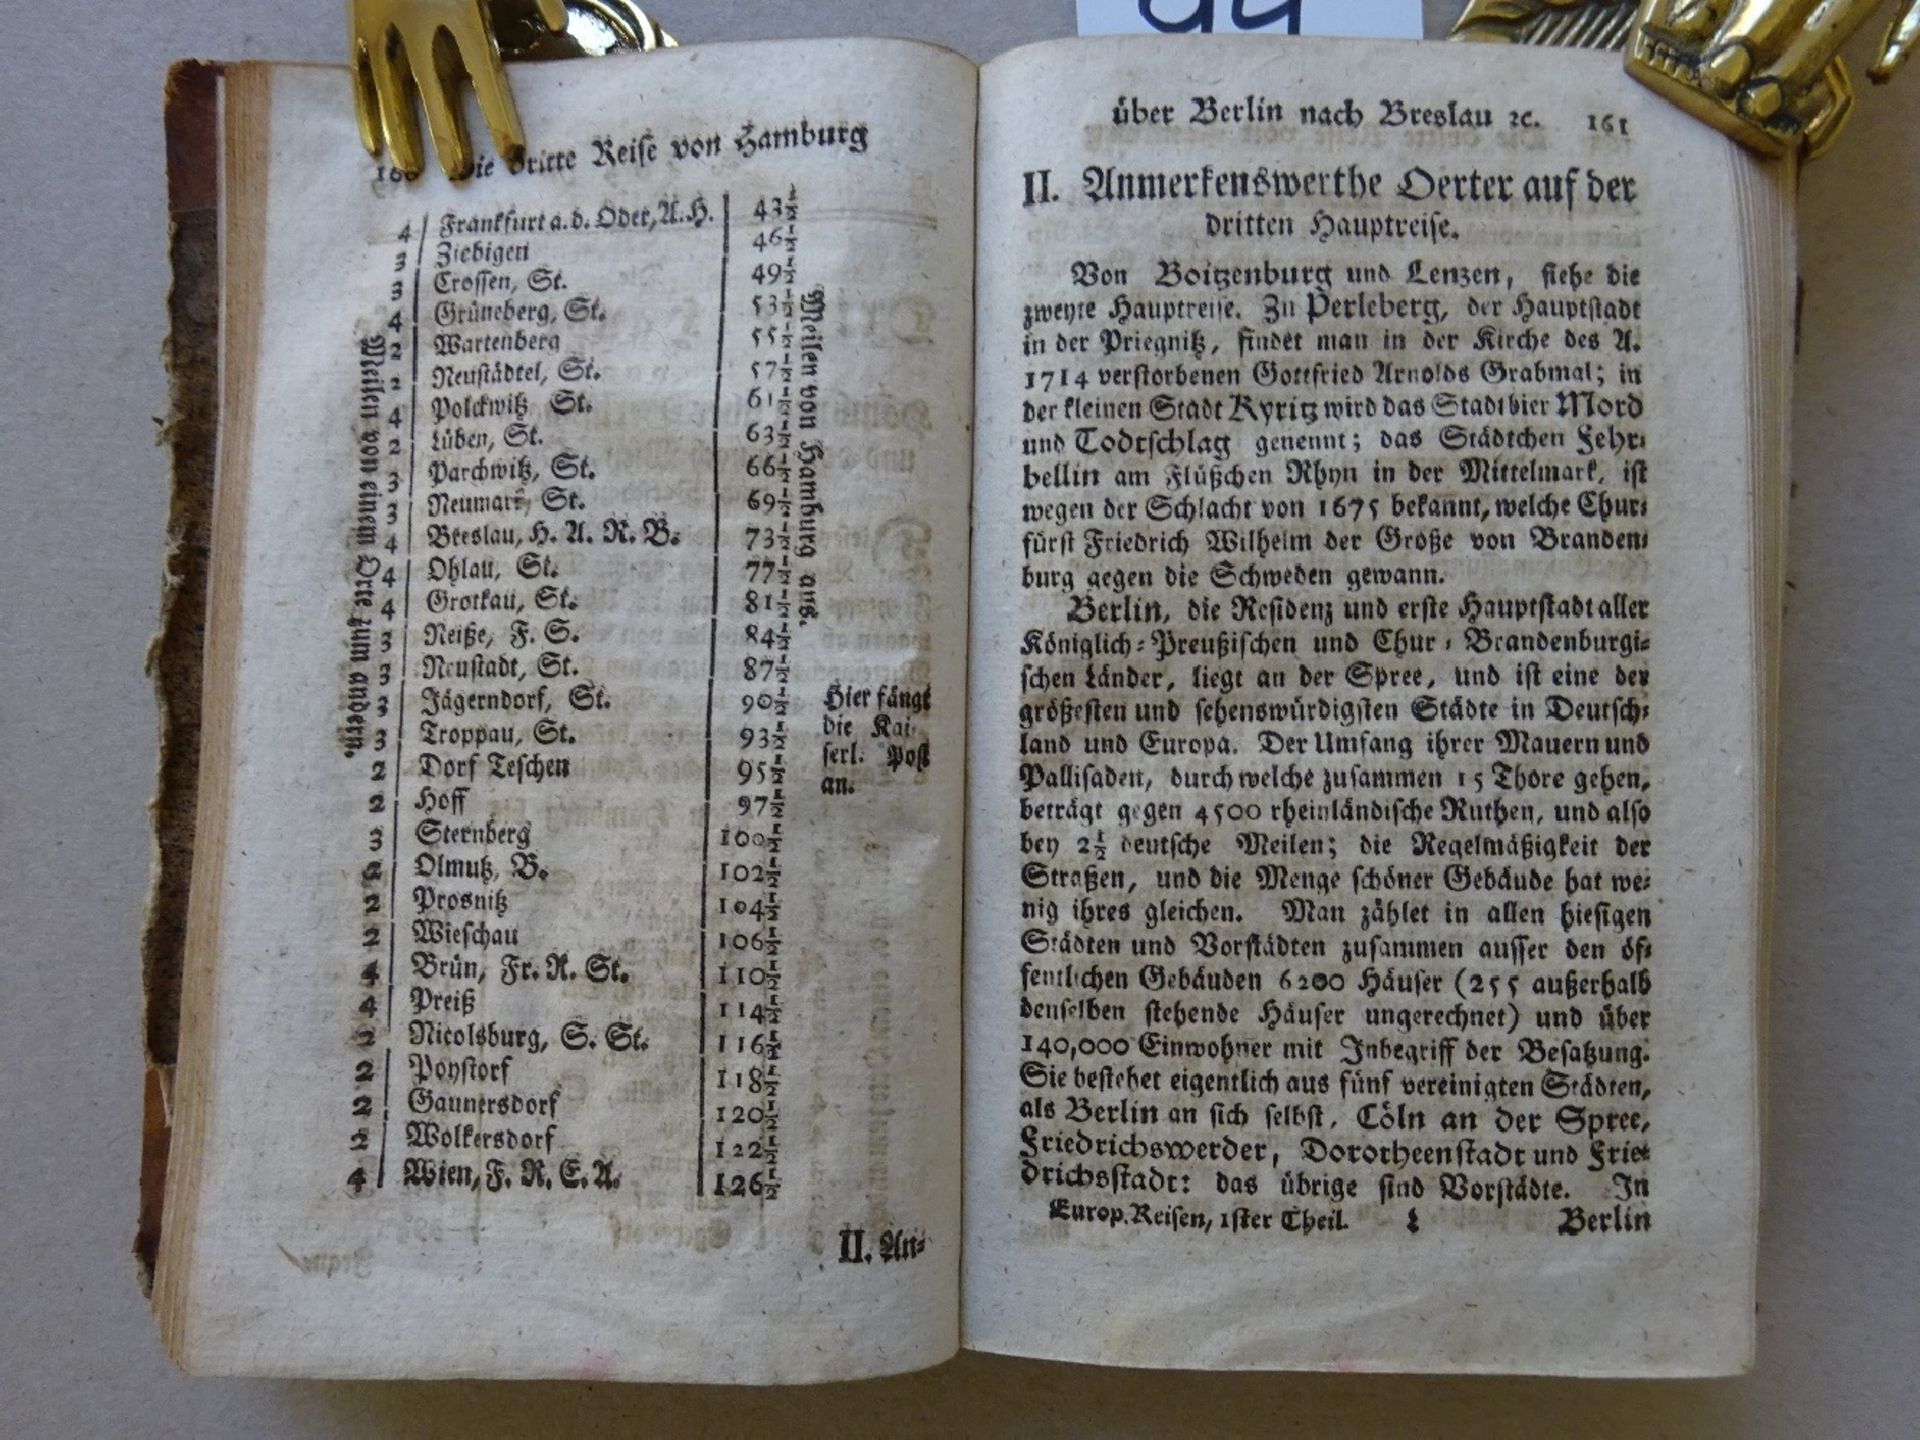 160 Die dritte Reise von Hamburg
4 Frankfurt a.d. Oder, A.H. 43½
3 Ziebigen 46½
3 Crossen, St. 49½
4 Grüneberg, St. 53½
2 Wartenberg 55½
2 Neustädtel, St. 57½
4 Polckwitz St. 61½
2 Lüben, St. 63½
3 Parchwitz, St. 66½
3 Neumark, St. 69½
4 Breslau, H. A. R. B. 73½
4 Ohlau, St. 77½
4 Grotkau, St. 81½
3 Neiße, F. S. 84½
3 Neustadt, St. 87½
3 Jägerndorf, St. 90½
3 Troppau, St. 93½
2 Dorf Teschen 95½
2 Hoff 97½
3 Sternberg 100½
2 Olmutz, B. 102½
2 Prosnitz 104½
2 Wieschau 106½
4 Brün, Fr. R. St. 110½
4 Preiß 114½
2 Nicolsburg, S. St. 116½
2 Poystorf 118½
2 Gaunersdorf 120½
2 Wolkersdorf 122½
4 Wien, F. R. E. A. 126½
Meilen von einem Orte zum andern.
Meilen von Hamburg aus.
Hier fängt
die Kai-
serl. Post
an.
II. An-
über Berlin nach Breslau ꝛc. 161
II. Anmerkenswerthe Oerter auf der
dritten Hauptreise.
Von Boitzenburg und Lenzen, siehe die
zweyte Hauptreise. Zu Perleberg, der Hauptstadt
in der Priegnitz, findet man in der Kirche des A.
1714 verstorbenen Gottfried Arnolds Grabmal; in
der kleinen Stadt Kyritz wird das Stadtbier Mord
und Todtschlag genennt; das Städtchen Fehr-
bellin am Flüßchen Rhyn in der Mittelmark, ist
wegen der Schlacht von 1675 bekannt, welche Chur-
fürst Friedrich Wilhelm der Große von Branden-
burg gegen die Schweden gewann.
Berlin, die Residenz und erste Hauptstadt aller
Königlich-Preußischen und Chur-Brandenburgi-
schen Länder, liegt an der Spree, und ist eine der
größesten und sehenswürdigsten Städte in Deutsch-
land und Europa. Der Umfang ihrer Mauern und
Pallisaden, durch welche zusammen 15 Thore gehen,
beträgt gegen 4500 rheinländische Ruthen, und also
bey 2½ deutsche Meilen; die Regelmäßigkeit der
Straßen, und die Menge schöner Gebäude hat we-
nig ihres gleichen. Man zählet in allen hiesigen
Städten und Vorstädten zusammen ausser den öf-
fentlichen Gebäuden 6200 Häuser (255 außerhalb
denselben stehende Häuser ungerechnet) und über
140,000 Einwohner mit Inbegriff der Besatzung.
Sie bestehet eigentlich aus fünf vereinigten Städten,
als Berlin an sich selbst, Cöln an der Spree,
Friedrichswerder, Dorotheenstadt und Frie-
drichsstadt: das übrige sind Vorstädte. In
Europ. Reisen, 1ster Theil. L Berlin